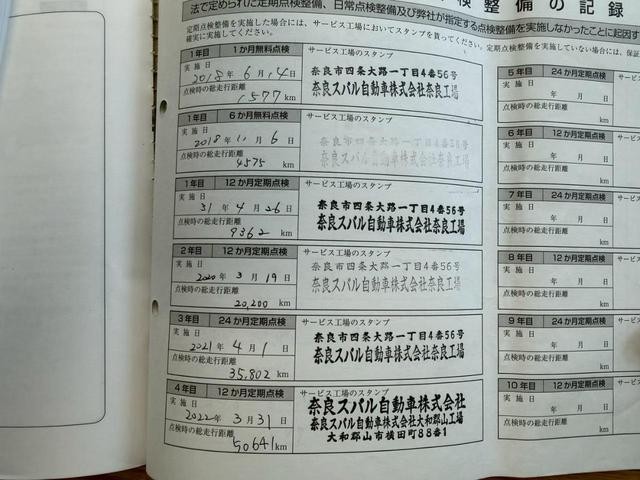 検整備の記録
法で定められた定期点検整備、日常点検整備及び弊社が指定する点検整備を実施しなかったことに起因す
定期点検整備を実施した場合には、サービス工場においてスタンプを貰ってください。定期点検整備を実施していない場合には、保証
確実に実施してください。
1年目 1か月無料点検 サービス工場のスタンプ
実施日
2018年6月14日
点検時の総走行距離
1577km
奈良市四条大路一丁目4番56号
奈良スバル自動車株式会社奈良工場
1年目 6か月無料点検 サービス工場のスタンプ
実施日
2018年11月6日
点検時の総走行距離
4575km
奈良市四条大路一丁目4番56号
奈良スバル自動車株式会社奈良工場
1年目 12か月定期点検 サービス工場のスタンプ
実施日
31年4月26日
点検時の総走行距離
9362km
奈良市四条大路一丁目4番56号
奈良スバル自動車株式会社奈良工場
2年目 12か月定期点検 サービス工場のスタンプ
実施日
2020年3月19日
点検時の総走行距離
20,200km
奈良市四条大路一丁目4番56号
奈良スバル自動車株式会社奈良工場
3年目 24か月定期点検 サービス工場のスタンプ
実施日
2021年4月1日
点検時の総走行距離
35,802km
奈良市四条大路一丁目4番56号
奈良スバル自動車株式会社奈良工場
4年目 12か月定期点検 サービス工場のスタンプ
実施日
2022年3月31日
点検時の総走行距離
50641km
奈良スバル自動車株式会社
奈良スバル自動車株式会社大和郡山工場
大和郡山市横田町88番1
5年目 24か月定期点検
実施日
年 月 日
点検時の総走行距離
km
6年目 12か月定期点検
実施日
年 月 日
点検時の総走行距離
km
7年目 24か月定期点検
実施日
年 月 日
点検時の総走行距離
km
8年目 12か月定期点検
実施日
年 月 日
点検時の総走行距離
km
9年目 24か月定期点検
実施日
年 月 日
点検時の総走行距離
km
10年目 12か月定期点検
実施日
年 月 日
点検時の総走行距離
km